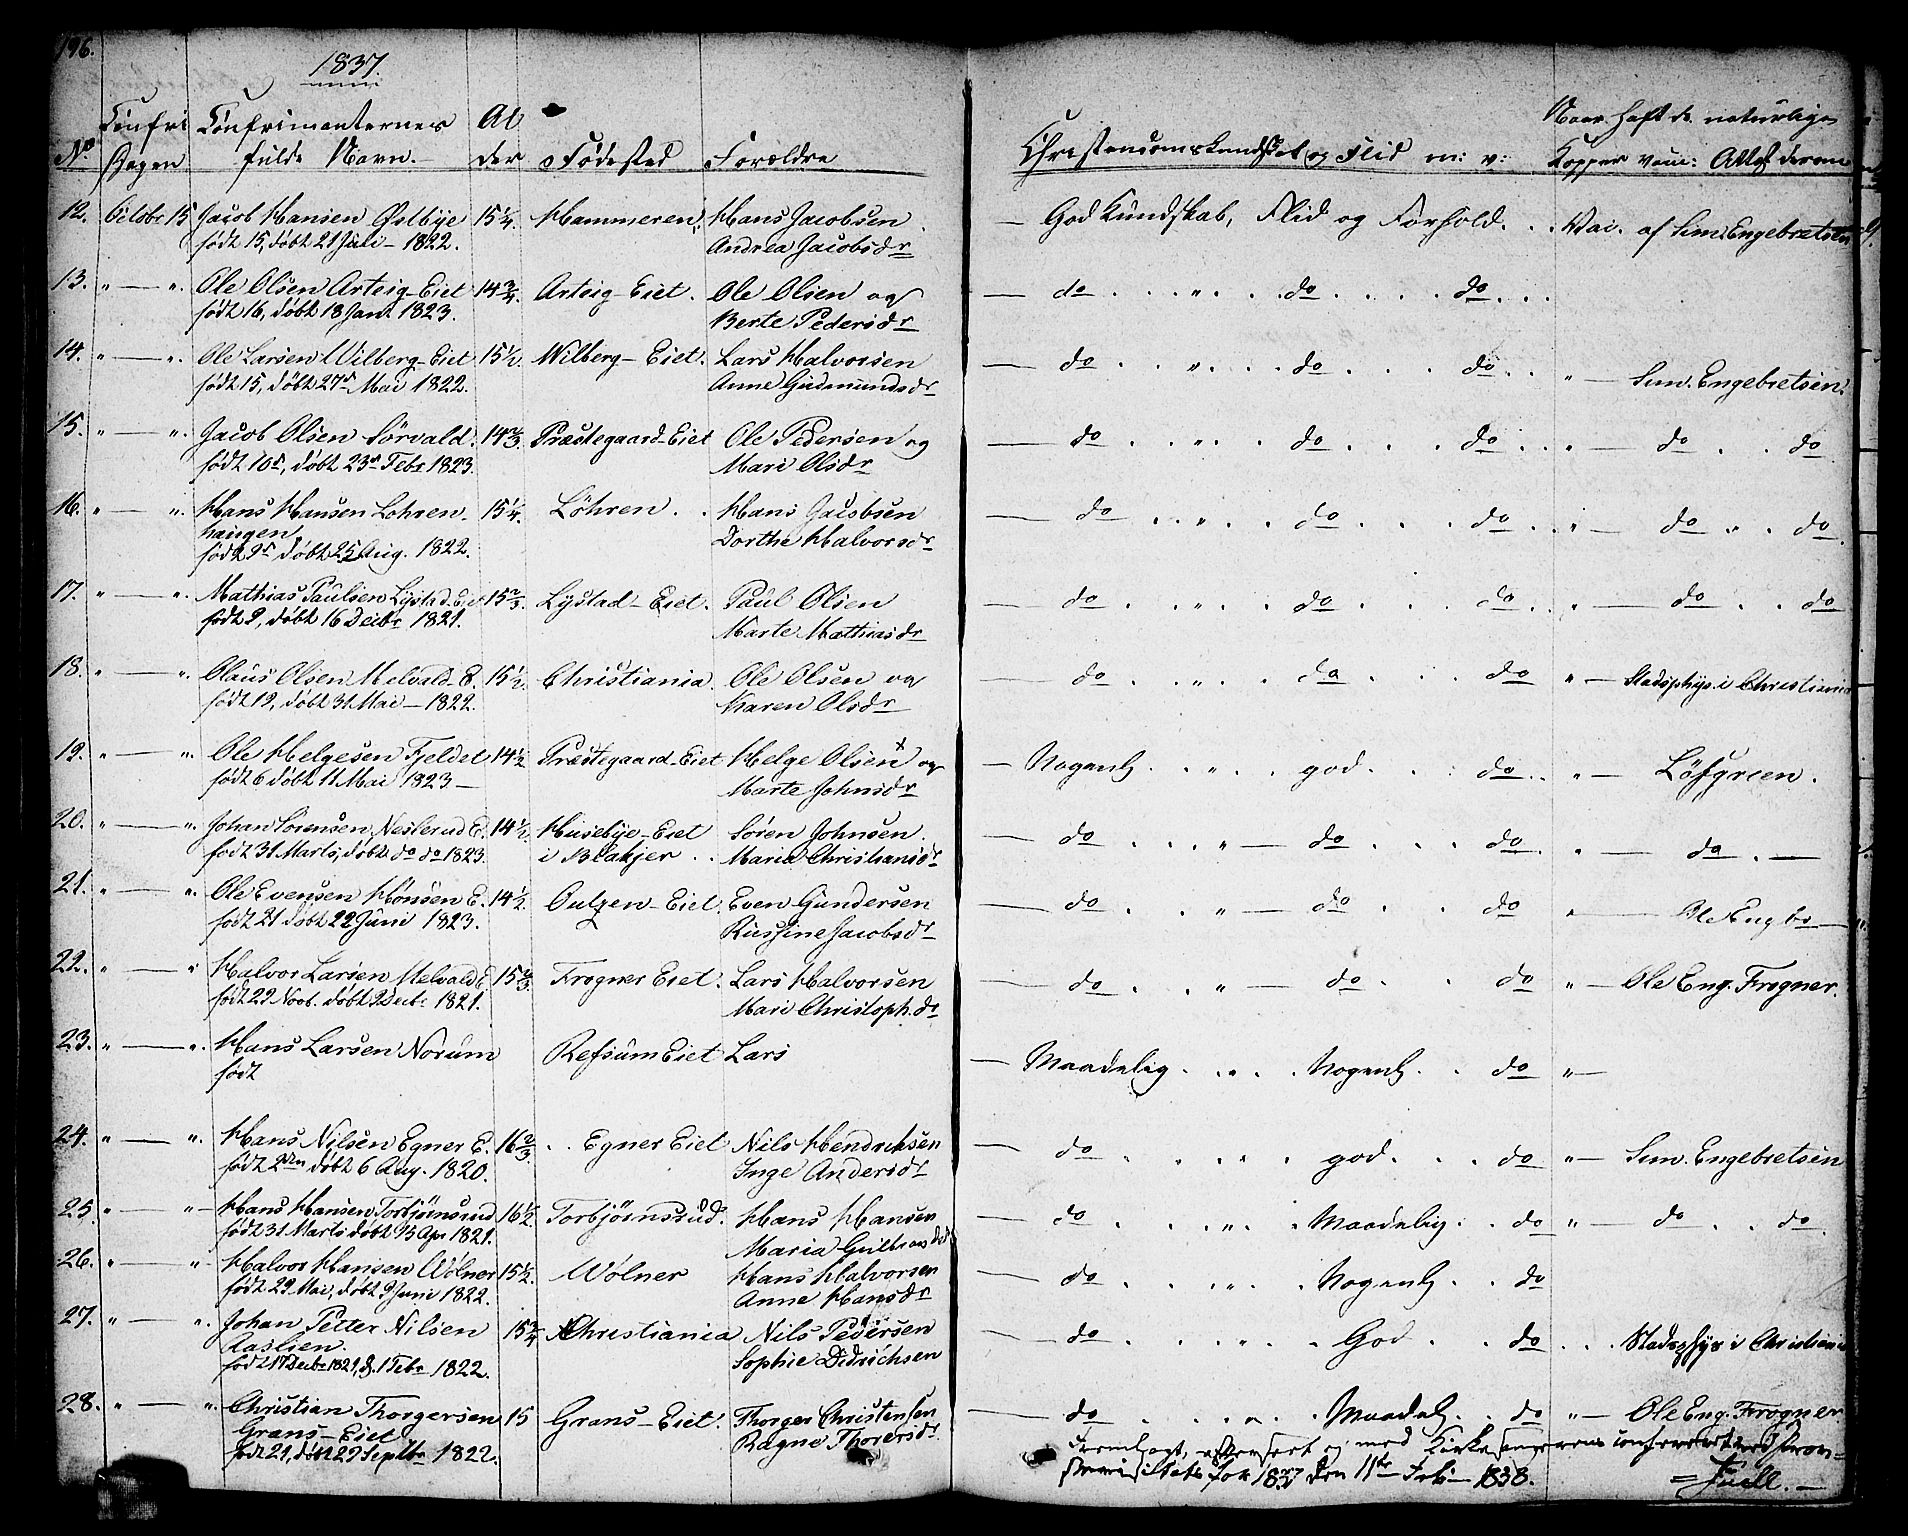 196.
1837.
No Confri Dagen Confirmanternes fulde Navn. Alder Fødested Forældre Christendomskundskab og Flid m: v: Naar haft de naturlige Kopper eller Vaci: Attest derom
12. Octobr 15 Jacob Hansen Østbye 15 1/4. Hammeren, Hans Jacobsen — God Kundskab, Flid og Forhold. . . Vac. af Sim. Engebretsen
født 15, døbt 21 Juli – 1822. Andrea Jacobsdr
13. " — ". Ole Olsen Arteig-Eiet 14 3/4. Arteig-Eiet. Ole Olsen og — do . . " . . do . . . . do . . .
født 16, døbt 18 Janr 1823. Berte Pedersdr
14. " — ". Ole Larsen Wilberg-Eiet 15 1/2. Wilberg-Eiet. Lars Halvorsen — do . . " . . . do . . . do . . " — Sim. Engebretsen.
født 15, døbt 27de Mai 1822. Anne Gudmundsdr
15. " — ". Jacob Olsen Sörvald. 14 2/3. Præstegaard-Eiet Ole Pedersen og — do . . " . . do . . . do . . " — do . . do
født 10de, døbt 23de Febr 1823. Mari Olsdr
16. " — ". Hans Hansen Lohren- 15 1/4. Löhren . . Hans Jacobsen — do . . " . . do . . . do . . " — do " . do
haugen,
født 9de døbt 25 Aug. 1822. Dorthe Halvorsdr
17. " — ". Mathias Paulsen Lystad-Eiet 15 2/3. Lystad-Eiet. Paul Olsen — do . . " . . do . . . do . . " — do . . do
født 9, døbt 16 Decbr 1821. Marte Mathiasdr
18. " — ". Olaus Olsen Melvald-E. 15 1/2. Christiania. Ole Olsen og — do . . " . . do . . . do " — Stadsphys. i Christiania
født 12, døbt 31 Mai – 1822. Karen Olsdr
19. " — ". Ole Helgesen Fjeldet 14 1/2 Præstegaard-Eiet Helge Olsen x og — Nogenl. . . " . . god . . . do . . " — Löfgreen.
født 6 døbt 11 Mai 1823 – Marte Johnsdr
20. " — ". Johan Sorensen Neslerud E. 14 1/2 Husebye-Eiet Sören Johnsen. — do . . . " — do . . . do . " — do . —
født 31 Marts, døbt do do 1823. i Blakjer . . Maria Christiansdr
21. " — ". Ole Evensen Hønsen E. 14 1/2. Eiet. Even Gundersen — do . . " — do . . do . " — Ole Eng
født 21 døbt 22 Juni 1823. Jacobsdr
22. " — " Halvor Larsen Melvald E 15 2/3. Frogner Eiet. Lars Halvorsen — do . . " — do . . do " — Ole Eng. Frogner.
født 29 Novb. døbt 9 Decbr 1821. Mari Christoph.dr
23. " — ". Hans Larsen Norum Refsum Eiet Lars — Maadelig . . " . . Nogenl . . do " —
født
24. " — ". Hans Nilsen Egner E. 16 2/3. . . Egner Eiet Nils Hendrichsen — do . . . " . god . . . do " — Sim. Engebretsen
født 2den døbt 6 Aug. 1820. Inge Andersdr
25. " — " – Hans Hansen Torbjörnsrud 16 1/2 Torbjörnsrud. Hans Hansen — do . . . " . . Maadelig . . do " — do . . do
født 31 Marts døbt 15 Apr 1821. Maria
26. " — " Halvor Hansen Wölner 15 1/2. Wölner Hans Halvorsen — do . . . " . . Nogenl . . do
født 29 Mai, døbt 9 Juni 1822. Anne Hansdr
27. " — ". Johan Petter Nilsen 15 3/4 Christiania Nils Pedersen — do . . . " . . God . . do . . . Stadsphys i Christiania
Aaslien.
født 17 Decbr 1821, d. 1 Febr 1822. Sophie Didrichsen
28. " — ". Christian Thorgersen 15 Grans-Eiet. Thorger Christensen — do . . . " . Maadel. . . do " — Ole Eng. Frogner
Grans-Eiet
født 21, døbt 29 Septbr 1822. Ragne Thorersdr.
Fremlagt, efterseet og med Kirkesangerens
for 1837 den 11te Febr 1838.
Juell.